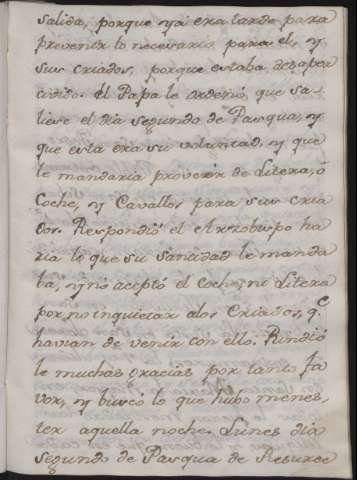 salida, porque ya era tarde para
prevenir lo necesario para el, y
sus criados, porque estaba desaper
civido. el Papa le ordenó que sa-
liese el dia segundo de Pasqua, y
que esta era su voluntad, y que
le mandaria proveer de Litera, ó
Coche, y Cavallos para sus cria
dos. Respondió el Arzobispo ha
ria lo que su santidad le manda
ba, y no aceptó el coche, ni Litera
por no inquietar alos Criados, q.e
havian de venir con ello. Rindió
le muchas gracias por tanto fa
vor, y buscó lo que hubo menes,
ter aquella noche. Lunes dia
segundo de Pasqua de Resurec